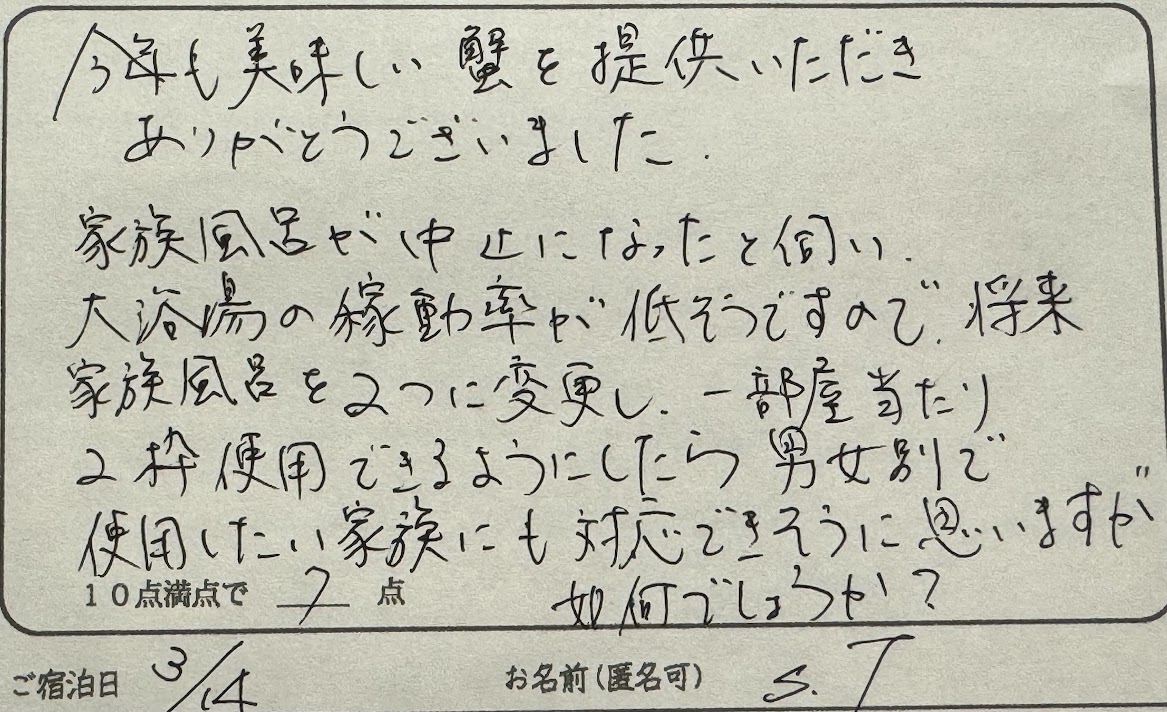 今年も美味しい蟹を提供いただき
ありがとうございました.
家族風呂が中止になったと伺い.
大浴場の稼動率が低そうですので、将来
家族風呂を2つに変更し、一部屋当たり
2枠使用できるようにしたら男女別で
使用したい家族にも対応できそうに思いますが
如何でしょうか?
10点満点で 7 点
ご宿泊日 3/14 お名前(匿名可) S.T